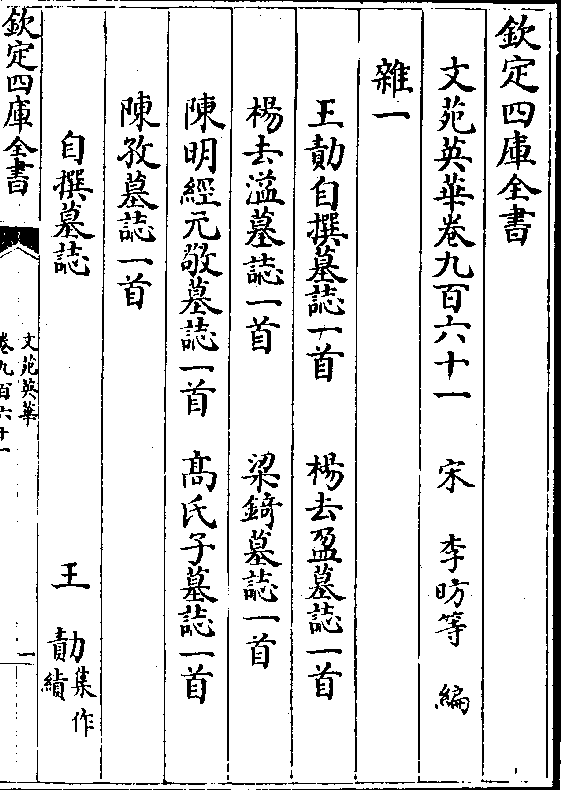 欽定四庫全書
文苑英華卷九百六十一　宋　李昉等　編
雜一
王勣自撰墓誌一首　楊去盈墓誌一首
楊去溢墓誌一首　梁錡墓誌一首
陳明經元敬墓誌一首　髙氏子墓誌一首
陳孜墓誌一首
自撰墓誌　王勣集作績
欽定四庫全書
文苑英華
卷九百六十一
一